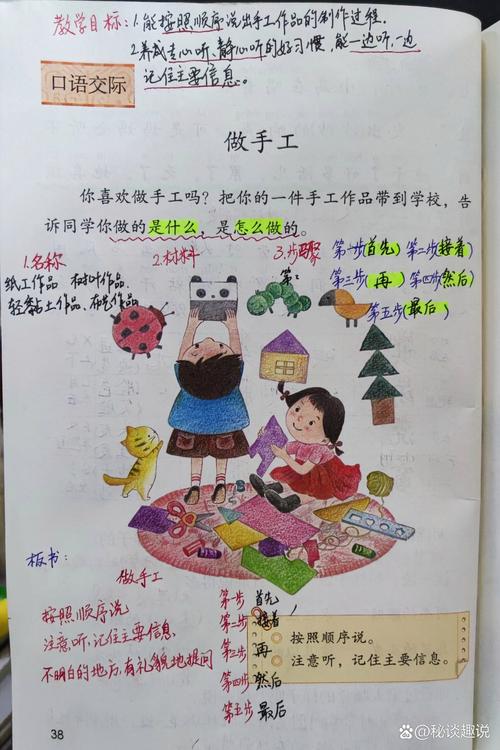 教学目标:1.能按照顺序说出手工作品的制作过程.
2.养成专心听、静心听的好习惯,能一边听,一边
记住主要信息。
口语交际
做手工
你喜欢做手工吗?把你的一件手工作品带到学校,告
诉同学你做的是什么,是怎么做的。
1.名称
2.材料
3.步骤
第一步(首先) 第二步(接着)
第三步(再) 第四步(然后)
第五步(最后)
纸工作品 树叶作品
轻黏土作品、布艺作品
板书:
做手工
按照顺序说
注意听,记住主要信息
不明白的地方,有礼貌地提问
第一步 首先
第二步 接着
第三步 再
第四步 然后
第五步 最后
按照顺序说。
注意听,记住主要信息。
38
@秘谈趣说